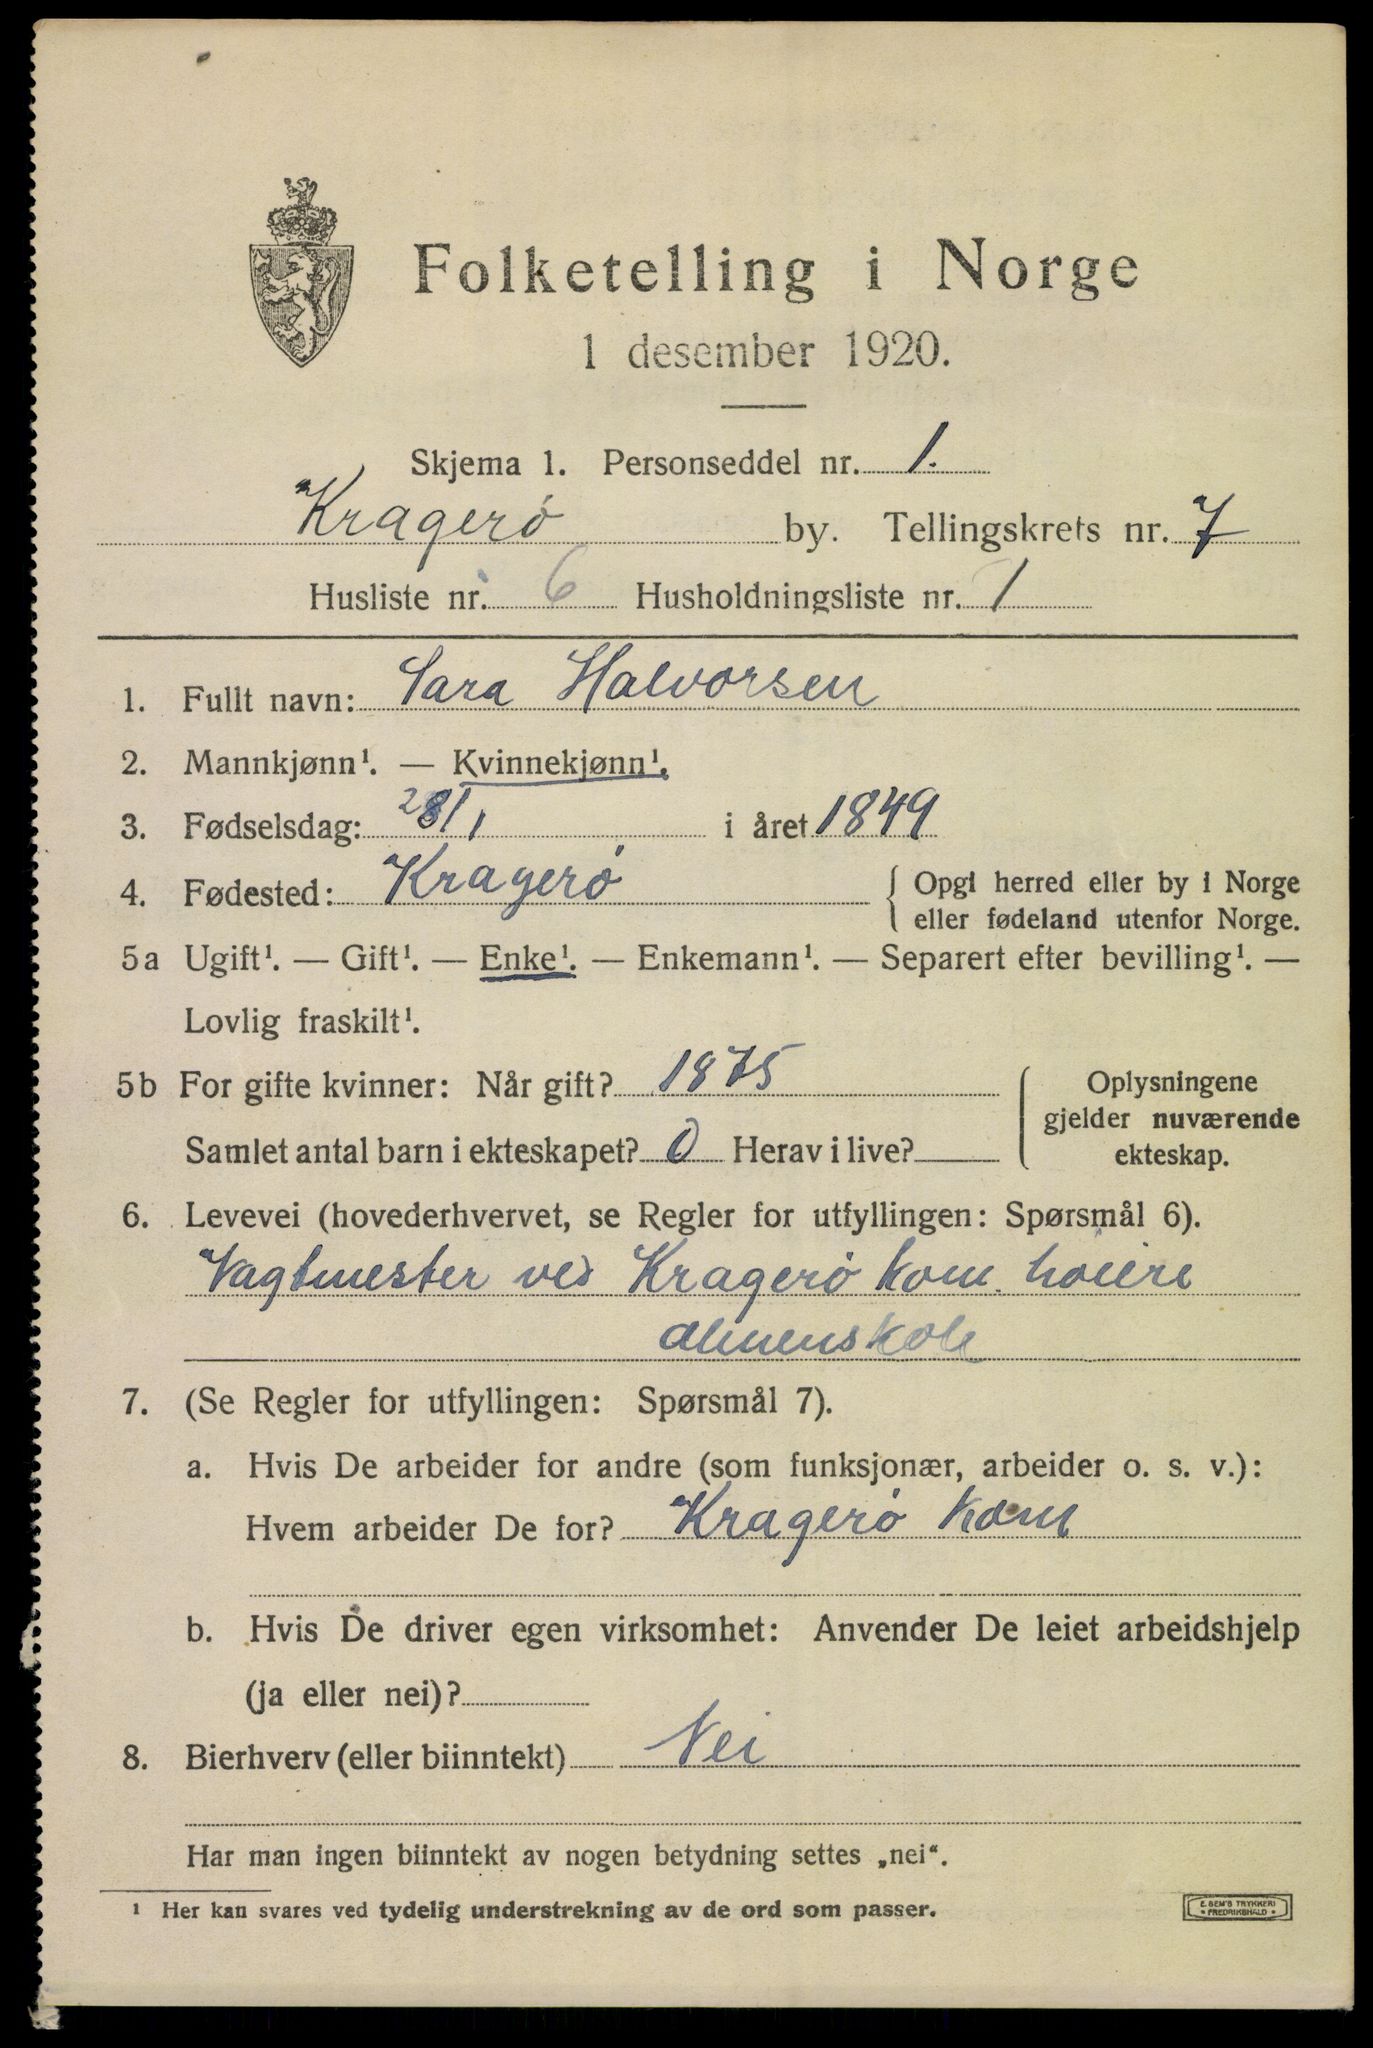 Folketelling i Norge
1 desember 1920.
Skjema 1. Personseddel nr. 1.
Kragerø by. Tellingskrets nr. 7
Husliste nr. 6 Husholdningsliste nr. 1
1. Fullt navn: Sara Halvorsen
2. Mannkjønn¹. — Kvinnekjønn¹.
3. Fødselsdag: 28/1 i året 1849
4. Fødested: Kragerø { Opgi herred eller by i Norge
eller fødeland utenfor Norge.
5a Ugift¹. — Gift¹. — Enke¹. — Enkemann¹. — Separert efter bevilling¹. —
Lovlig fraskilt¹.
5b For gifte kvinner: Når gift? 1875
Samlet antal barn i ekteskapet? 0 Herav i live?
Oplysningene
gjelder nuværende
ekteskap.
6. Levevei (hovederhvervet, se Regler for utfyllingen: Spørsmål 6).
Vagtmester ved Kragerø kom. høiere
almenskole
7. (Se Regler for utfyllingen: Spørsmål 7).
a. Hvis De arbeider for andre (som funksjonær, arbeider o. s. v.):
Hvem arbeider De for? Kragerø kom
b. Hvis De driver egen virksomhet: Anvender De leiet arbeidshjelp
(ja eller nei)?
8. Bierhverv (eller biinntekt) Nei
Har man ingen biinntekt av nogen betydning settes „nei“.
¹ Her kan svares ved tydelig understrekning av de ord som passer.
E. SEM'S TRYKKERI
• FREDRIKSHALD •